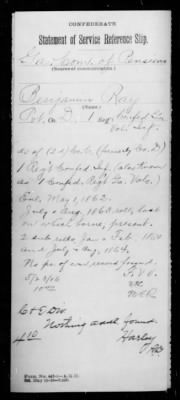 CONFEDERATE
Statement of Service Reference Slip.
Ga. Comr. of Pensions
(Source of communication.)
Benjamin Ray
(Name.)
Pvt. Co. D. 1 Regt Confed. Ga.
Vols. Inf.
as of (2d) Co. C. (formerly Co. D.)
1 Reg't Confed. Inf. (also known
as 1 Confed. Reg't Ga. Vols.)
Enl. May 1, 1862.
July & Aug. 1863, roll, last
on which borne, present.
2 rolls Jan & Feb. 1864
and July & Aug. 1864.
No. pr. of war record found.
C & E Div.
Nothing addl found
Harley
Form No. A. G. O.